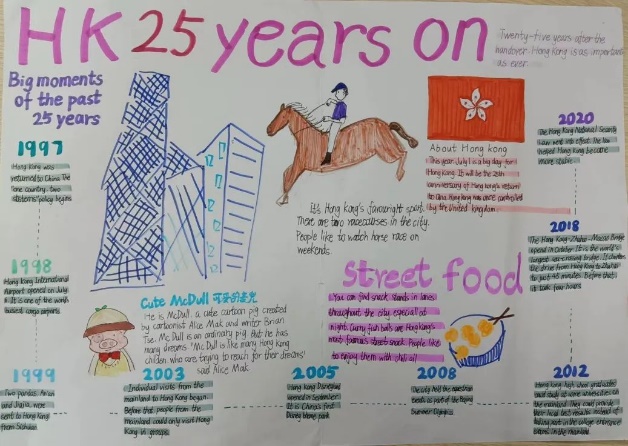 HK 25 years on
Twenty-five years after the
handover Hong Kong is as important
as ever
Big moments
of the past
25 years
1997
Hong Kong was
returned to China The
"one country, two
systems" policy begins
1998
Hong Kong International
Airport opened on July
6. It is one of the world's
busiest cargo airports
1999
Two pandas, An'an
and Jiajia, were
sent to Hong Kong
from Sichuan
2003
Individual visits from the
mainland to Hong Kong began.
Before that people from the
mainland could only visit Hong
Kong in groups
2005
Hong Kong Disneyland
opened in September
It is China's first
Disney theme park
2008
The city held the equestrian
events as part of the Beijing
Summer Olympics
2012
Hong Kong high school graduates
could study at some universities on
the mainland They could provide
their local test results instead of
taking part in the college entrance
exams in the mainland
2018
The Hong Kong-Zhuhai-Macao Bridge
opened in October It is the world's
longest sea-crossing bridge. It shortens
the drive from Hong Kong to Zhuhai
to just 45 minutes. Before that,
it took four hours
2020
The Hong Kong National Security
Law went into effect The law
helped Hong Kong become
more stable
About Hong Kong
This year, July 1 is a big day for
Hong Kong. It will be the 25th
anniversary of Hong Kong's return
to China Hong Kong was once controlled
by the United Kingdom
It's Hong Kong's favouright sport.
There are two racecourses in the city.
People like to watch horse race on
weekends
Street food
You can find snack stands in lanes
throughout the city, especial at
night. Curry fish balls are Hong Kong's
most famous street snack. People like
to enjoy them with chili oil
Cute McDull 可爱的麦兜
He is McDull. a cute cartoon pig created
by cartoonist Alice Mak and writer Brian
Tse. Mc Dull is an ordinary pig. But he has
many dreams "McDull is like many Hong Kong
children who are trying to reach for their dreams"
said Alice Mak